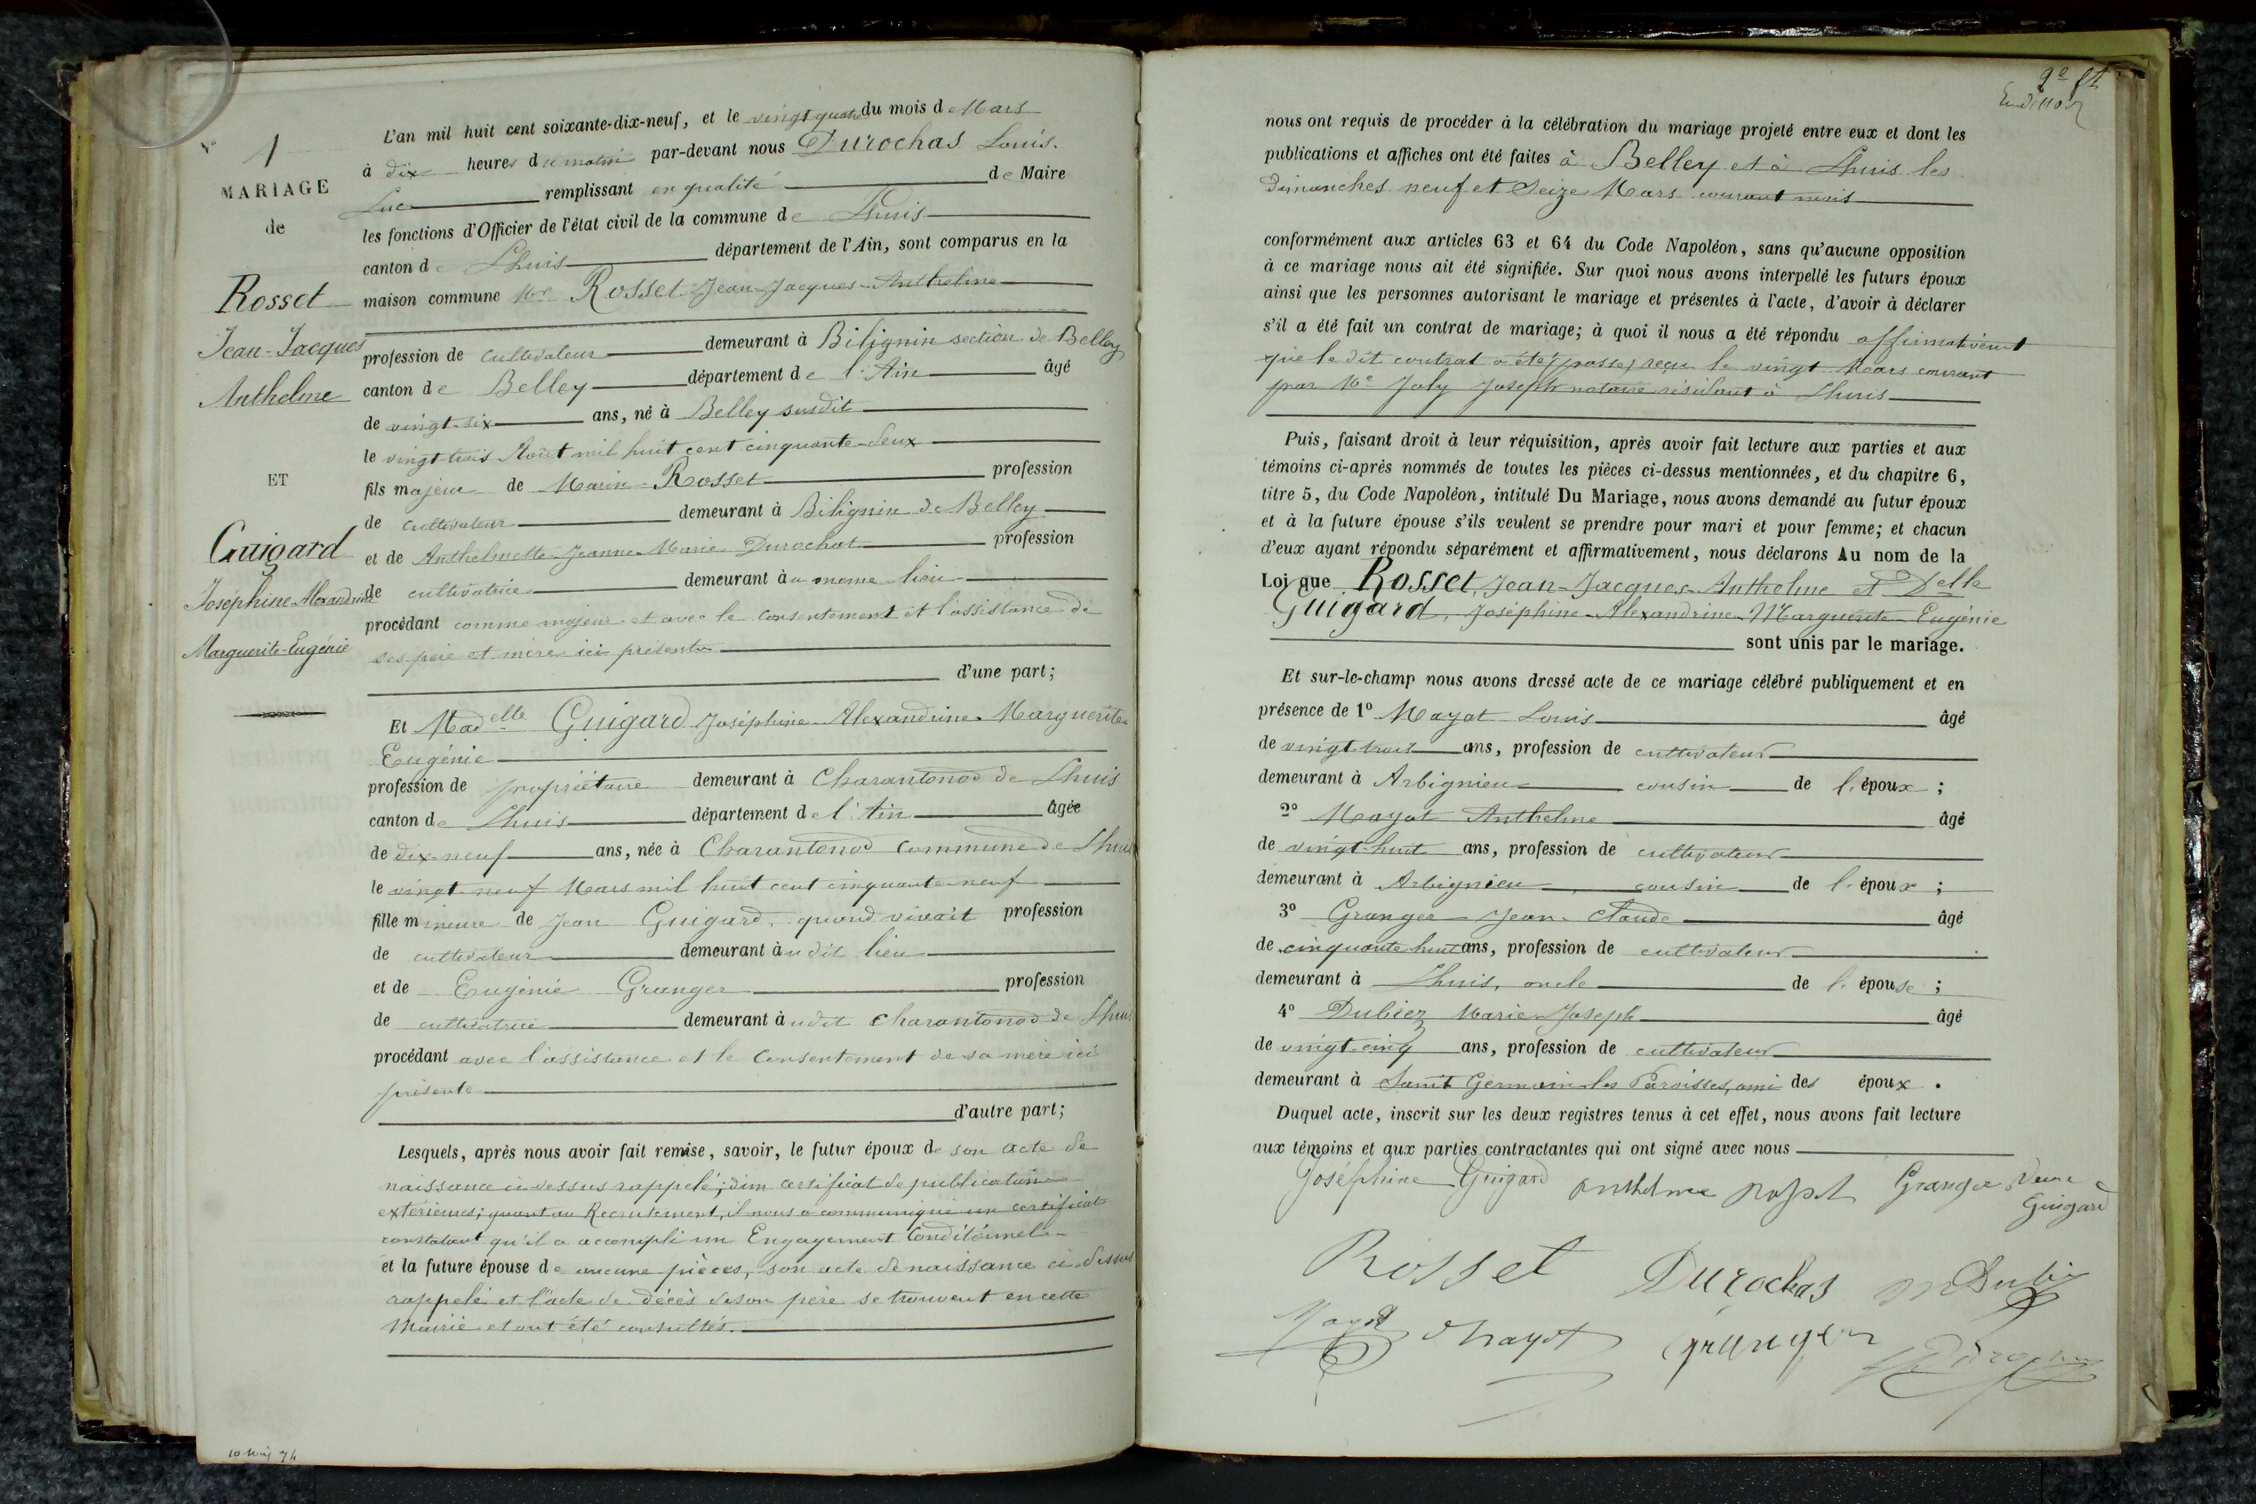 N° 1
MARIAGE
de
Rosset
Jean-Jacques
Anthelme
ET
Guigard
Joséphine-Alexandrine
Marguerite-Eugénie
L'an mil huit cent soixante-dix-neuf, et le vingt quatre du mois de Mars
à dix heures du matin par-devant nous Durochas Louis.
Luc remplissant en qualité de Maire
les fonctions d'Officier de l'état civil de la commune de Lhuis
canton de Lhuis département de l'Ain, sont comparus en la
maison commune Mr Rosset Jean-Jacques-Anthelme
profession de cultivateur demeurant à Bilignin section de Belley
canton de Belley département de l'Ain âgé
de vingt-six ans, né à Belley susdit
le vingt-trois Août mil huit cent cinquante-deux
fils majeur de Marin Rosset profession
de cultivateur demeurant à Bilignin de Belley
et de Anthelmette Jeanne-Marie Durochat profession
de cultivatrice demeurant au meme lieu
procédant comme majeur et avec le consentement et l'assistance de
ses père et mère ici présents
d'une part;
Et Madelle Guigard Joséphine-Alexandrine-Marguerite-
Eugénie
profession de propriétaire demeurant à Charantonod de Lhuis
canton de Lhuis département de l'Ain âgée
de dix-neuf ans, née à Charantonod commune de Lhuis
le vingt-neuf Mars mil huit cent cinquante-neuf
fille mineure de Jean Guigard, quand vivait profession
de cultivateur demeurant audit lieu
et de Eugénie Granger profession
de cultivatrice demeurant audit Charantonod de Lhuis
procédant avec l'assistance et le consentement de sa mère ici
présente
d'autre part;
Lesquels, après nous avoir fait remise, savoir, le futur époux de son acte de
naissance ci-dessus rappelé; d'un certificat de publications
extérieures; quant au Recrutement, il nous a communiqué un certificat
constatant qu'il a accompli un Engagement Conditionnel
et la future épouse de aucune pièces, son acte de naissance ci-dessus
rappelé et l'acte de décès de son père se trouvent en cette
Mairie et ont été consultés.
nous ont requis de procéder à la célébration du mariage projeté entre eux et dont les
publications et affiches ont été faites à Belley et à Lhuis les
dimanches neuf et seize Mars courant mois
conformément aux articles 63 et 64 du Code Napoléon, sans qu'aucune opposition
à ce mariage nous ait été signifiée. Sur quoi nous avons interpellé les futurs époux
ainsi que les personnes autorisant le mariage et présentes à l'acte, d'avoir à déclarer
s'il a été fait un contrat de mariage; à quoi il nous a été répondu affirmativement
que le dit contrat a été (passé) reçu le vingt Mars courant
par Me Joly Joseph notaire résidant à Lhuis
Puis, faisant droit à leur réquisition, après avoir fait lecture aux parties et aux
témoins ci-après nommés de toutes les pièces ci-dessus mentionnées, et du chapitre 6,
titre 5, du Code Napoléon, intitulé Du Mariage, nous avons demandé au futur époux
et à la future épouse s'ils veulent se prendre pour mari et pour femme; et chacun
d'eux ayant répondu séparément et affirmativement, nous déclarons Au nom de la
Loi que Rosset, Jean-Jacques-Anthelme et Delle
Guigard, Joséphine-Alexandrine-Marguerite-Eugénie
sont unis par le mariage.
Et sur-le-champ nous avons dressé acte de ce mariage célébré publiquement et en
présence de 1° Mayot Louis âgé
de vingt-trois ans, profession de cultivateur
demeurant à Arbignieu cousin de l'époux ;
2° Mayot Anthelme âgé
de vingt-huit ans, profession de cultivateur
demeurant à Arbignieu, cousin de l'époux ;
3° Granger Jean-Claude âgé
de cinquante huit ans, profession de cultivateur
demeurant à Lhuis, oncle de l'épouse ;
4° Dubiez Marie-Joseph âgé
de vingt-cinq ans, profession de cultivateur
demeurant à Saint Germain-les Paroisses, ami des époux .
Duquel acte, inscrit sur les deux registres tenus à cet effet, nous avons fait lecture
aux témoins et aux parties contractantes qui ont signé avec nous
Joséphine Guigard Anthelme Rosset Granger Veuve
Guigard
Rosset Durochas Dubiez
Mayot Mayot granger